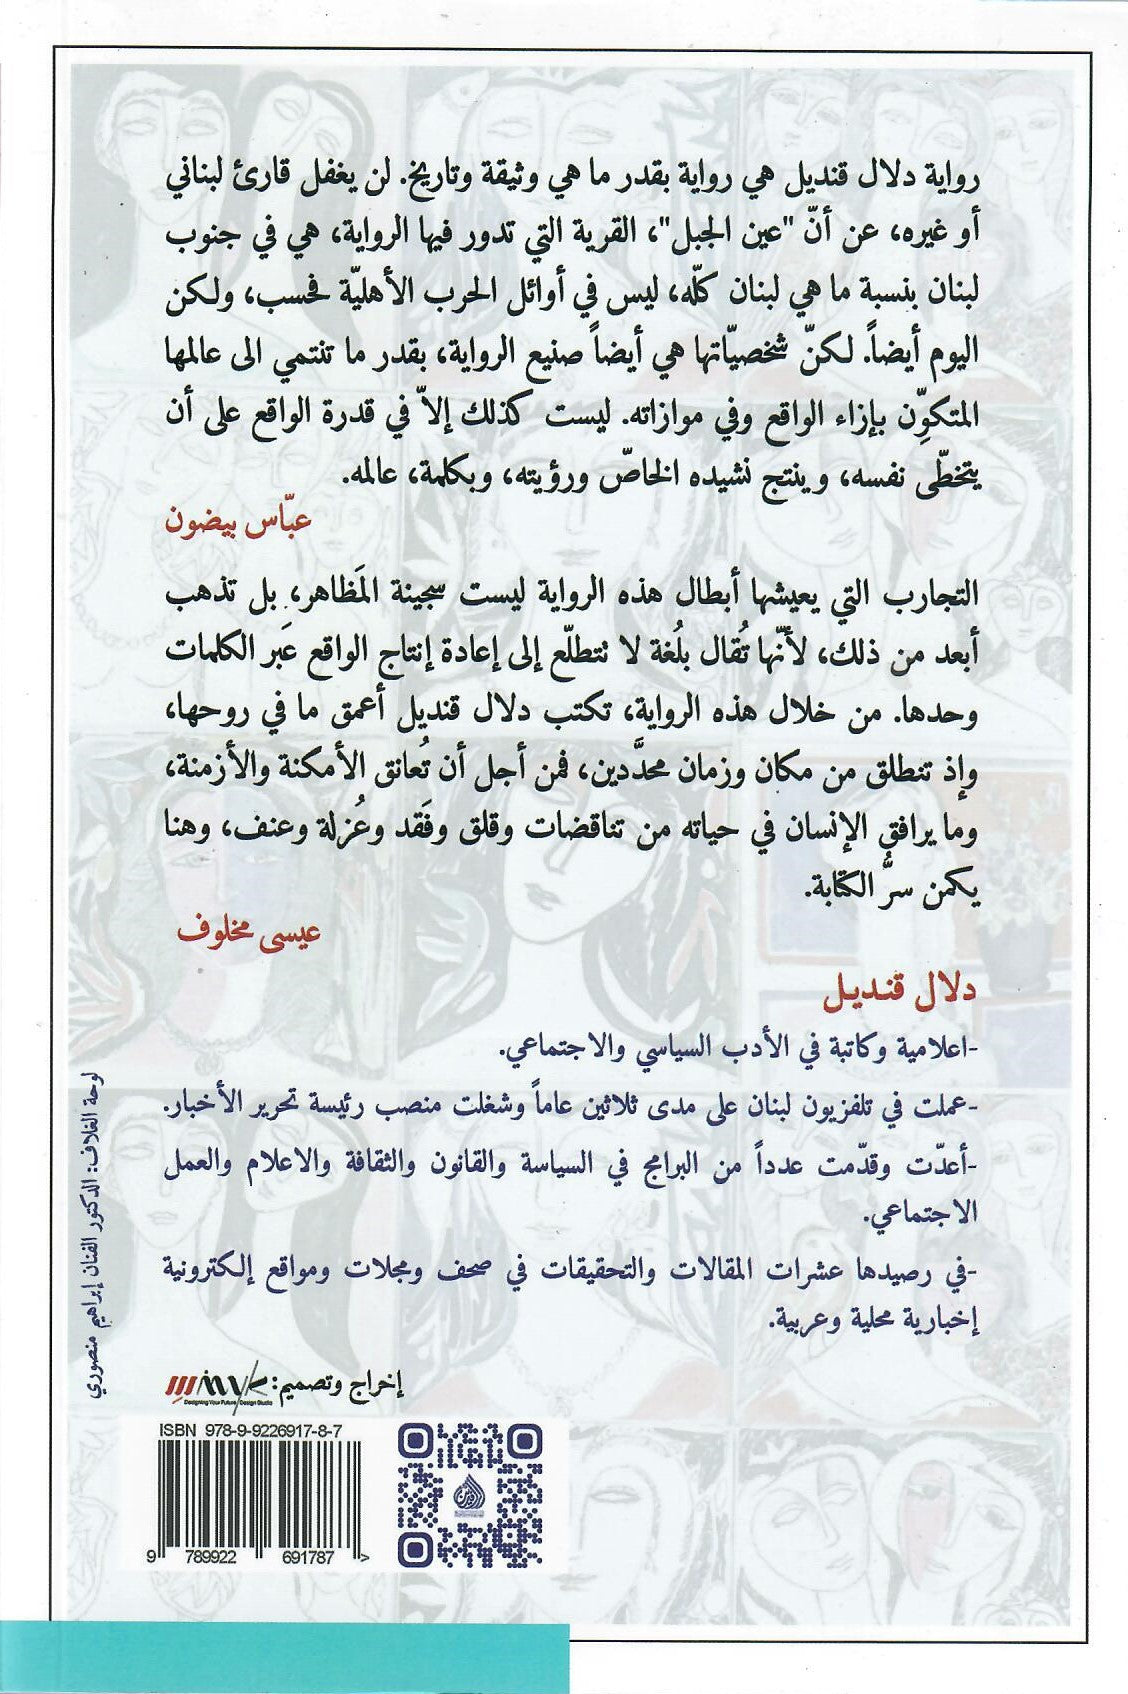 رواية دلال قنديل هي رواية بقدر ما هي وثيقة وتاريخ. لن يغفل قارئ لبناني
أو غيره، عن أنّ "عين الجبل"، القرية التي تدور فيها الرواية، هي في جنوب
لبنان بنسبة ما هي لبنان كلّه، ليس في أوائل الحرب الأهليّة فحسب، ولكن
اليوم أيضاً. لكنّ شخصيّاتها هي أيضاً صنيع الرواية، بقدر ما تنتمي الى عالمها
المتكوِّن بإزاء الواقع وفي موازاته. ليست كذلك إلاّ في قدرة الواقع على أن
يتخطّى نفسه، وينتج نشيده الخاصّ ورؤيته، وبكلمة، عالمه.
عبّاس بيضون
التجارب التي يعيشها أبطال هذه الرواية ليست سجينة المَظاهر، بل تذهب
أبعد من ذلك، لأنّها تُقال بلُغة لا تتطلّع إلى إعادة إنتاج الواقع عَبر الكلمات
وحدها. من خلال هذه الرواية، تكتب دلال قنديل أعمق ما في روحها،
وإذ تنطلق من مكان وزمان محدَّدين، فمن أجل أن تُعانق الأمكنة والأزمنة،
وما يرافق الإنسان في حياته من تناقضات وقلق وفَقد وعُزلة وعنف، وهنا
يكمن سرُّ الكتابة.
عيسى مخلوف
دلال قنديل
-اعلامية وكاتبة في الأدب السياسي والاجتماعي.
-عملت في تلفزيون لبنان على مدى ثلاثين عاماً وشغلت منصب رئيسة تحرير الأخبار.
-أعدّت وقدّمت عدداً من البرامج في السياسة والقانون والثقافة والاعلام والعمل
الاجتماعي.
-في رصيدها عشرات المقالات والتحقيقات في صحف ومجلات ومواقع إلكترونية
إخبارية محلية وعربية.
لوحة الغلاف: الدكتور الفنان إبراهيم منصوري
إخراج وتصميم:
Designing Your Future / Design Studio
ISBN 978-9-9226917-8-7
9 789922 691787 >